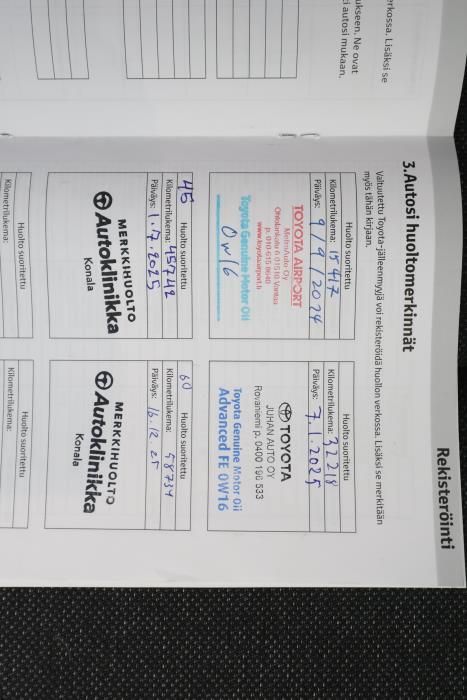 erkossa. Lisäksi se
ukseen. Ne ovat
ti autosi mukaan.
Rekisteröinti
3.Autosi huoltomerkinnät
Valtuutettu Toyota-jälleenmyyjä voi rekisteröidä huollon verkossa. Lisäksi se merkitään
myös tähän kirjaan.
Huolto suoritettu
Kilometrilukema: 15417
Päiväys: 9/9/2024
TOYOTA AIRPORT
MetroAuto Oy
Ohtolankatu 6 01510 Vantaa
p. 010 615 8640
www.toyotaairport.fi
Toyota Genuine Motor Oil
0W16
Huolto suoritettu
Kilometrilukema: 32218
Päiväys: 7.1.2025
TOYOTA
JUHAN AUTO OY
Rovaniemi p. 0400 196 533
Toyota Genuine Motor Oil
Advanced FE 0W16
45 Huolto suoritettu
Kilometrilukema: 45742
Päiväys: 1.7.2025
MERKKIHUOLTO
Autoklinikka
Konala
60 Huolto suoritettu
Kilometrilukema: 58734
Päiväys: 16.12.25
MERKKIHUOLTO
Autoklinikka
Konala
Huolto suoritettu
Kilometrilukema:
Huolto suoritettu
Kilometrilukema: